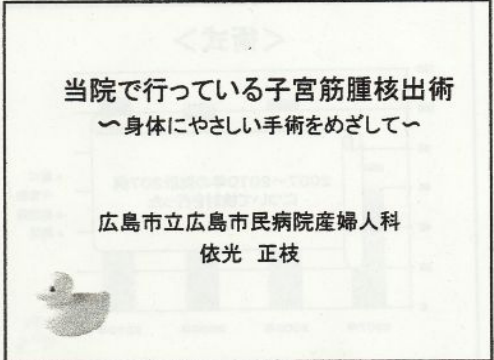 当院で行っている子宮筋腫核出術
～身体にやさしい手術をめざして～
広島市立広島市民病院産婦人科
依光 正枝